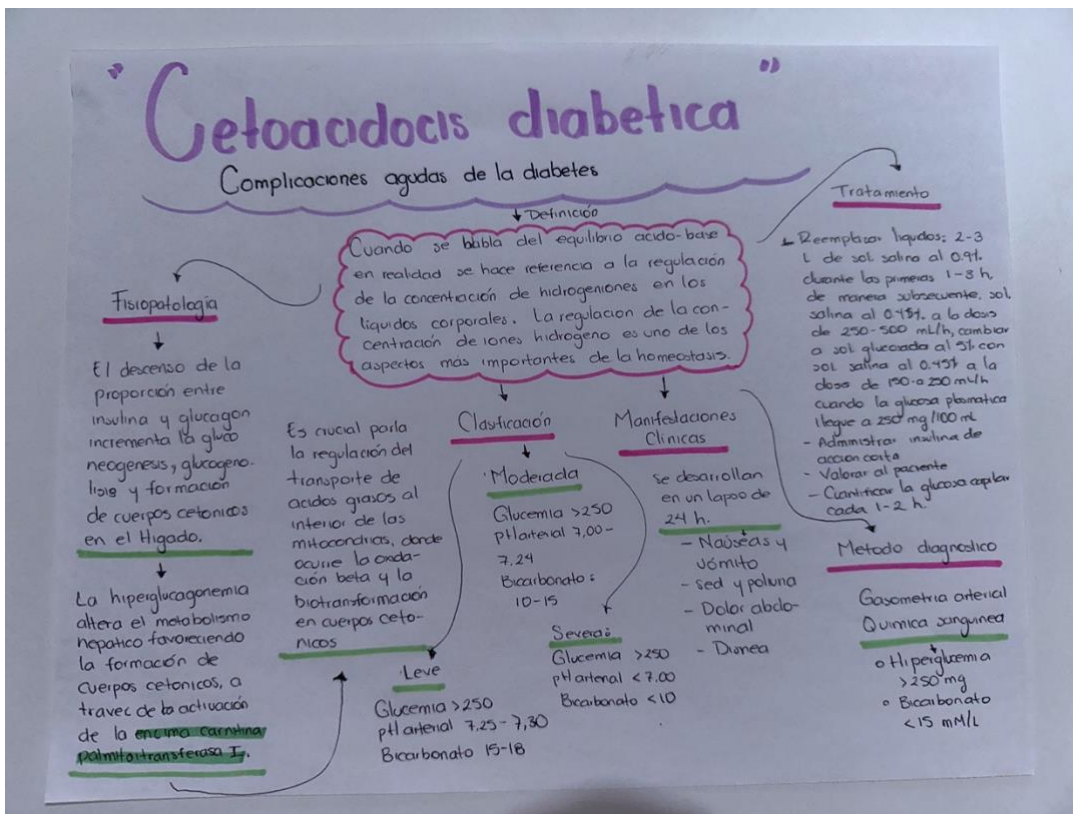 "Cetoacidocis diabetica"
Complicaciones agudas de la diabetes
Definición
Cuando se habla del equilibrio acido-base
en realidad se hace referencia a la regulación
de la concentración de hidrogeniones en los
liquidos corporales. La regulacion de la con-
centración de iones hidrogeno es uno de los
aspectos más importantes de la homeostasis.
Fisiopatologia
El descenso de la
proporción entre
insulina y glucagon
incrementa la gluco
neogenesis, glucogeno-
lisis y formación
de cuerpos cetonicos
en el Higado.
La hiperglucagonemia
altera el metabolismo
hepatico favoreciendo
la formación de
cuerpos cetonicos, a
travec de la activación
de la encima carnitina
palmitoitransferasa I.
Es crucial parla
la regulación del
transporte de
acidos grasos al
interior de las
mitocondrias, donde
ocurre la oxida-
ción beta y la
biotransformación
en cuerpos ceto-
nicos
Clasificación
· Moderada
Glucemia >250
pH arterial 7,00-
7,24
Bicarbonato:
10-15
Severa:
Glucemia >250
pH arterial <7.00
Bicarbonato <10
· Leve
Glucemia >250
pH arterial 7,25-7,30
Bicarbonato 15-18
Manifestaciones
Clinicas
se desarrollan
en un lapso de
24 h.
- Naúseas y
vómito
- sed y poliuria
- Dolor abdo-
minal
- Disnea
Tratamiento
Reemplazar liquidos: 2-3
L de sol salina al 0.9%
durante las primeras 1-3 h.
de manera subsecuente, sol
salina al 0.45% a la dosis
de 250-500 mL/h, cambiar
a sol glucosada al 5% con
sol salina al 0.45% a la
dosis de 150 a 250 mL/h
cuando la glucosa plasmatica
llegue a 250 mg/100 mL
- Administrar insulina de
accion corta
- Valorar al paciente
- Cuantificar la glucosa capilar
cada 1-2 h.
Metodo diagnostico
Gasometria arterial
Quimica sanguinea
o Hiperglucemia
>250 mg
o Bicarbonato
<15 mM/L